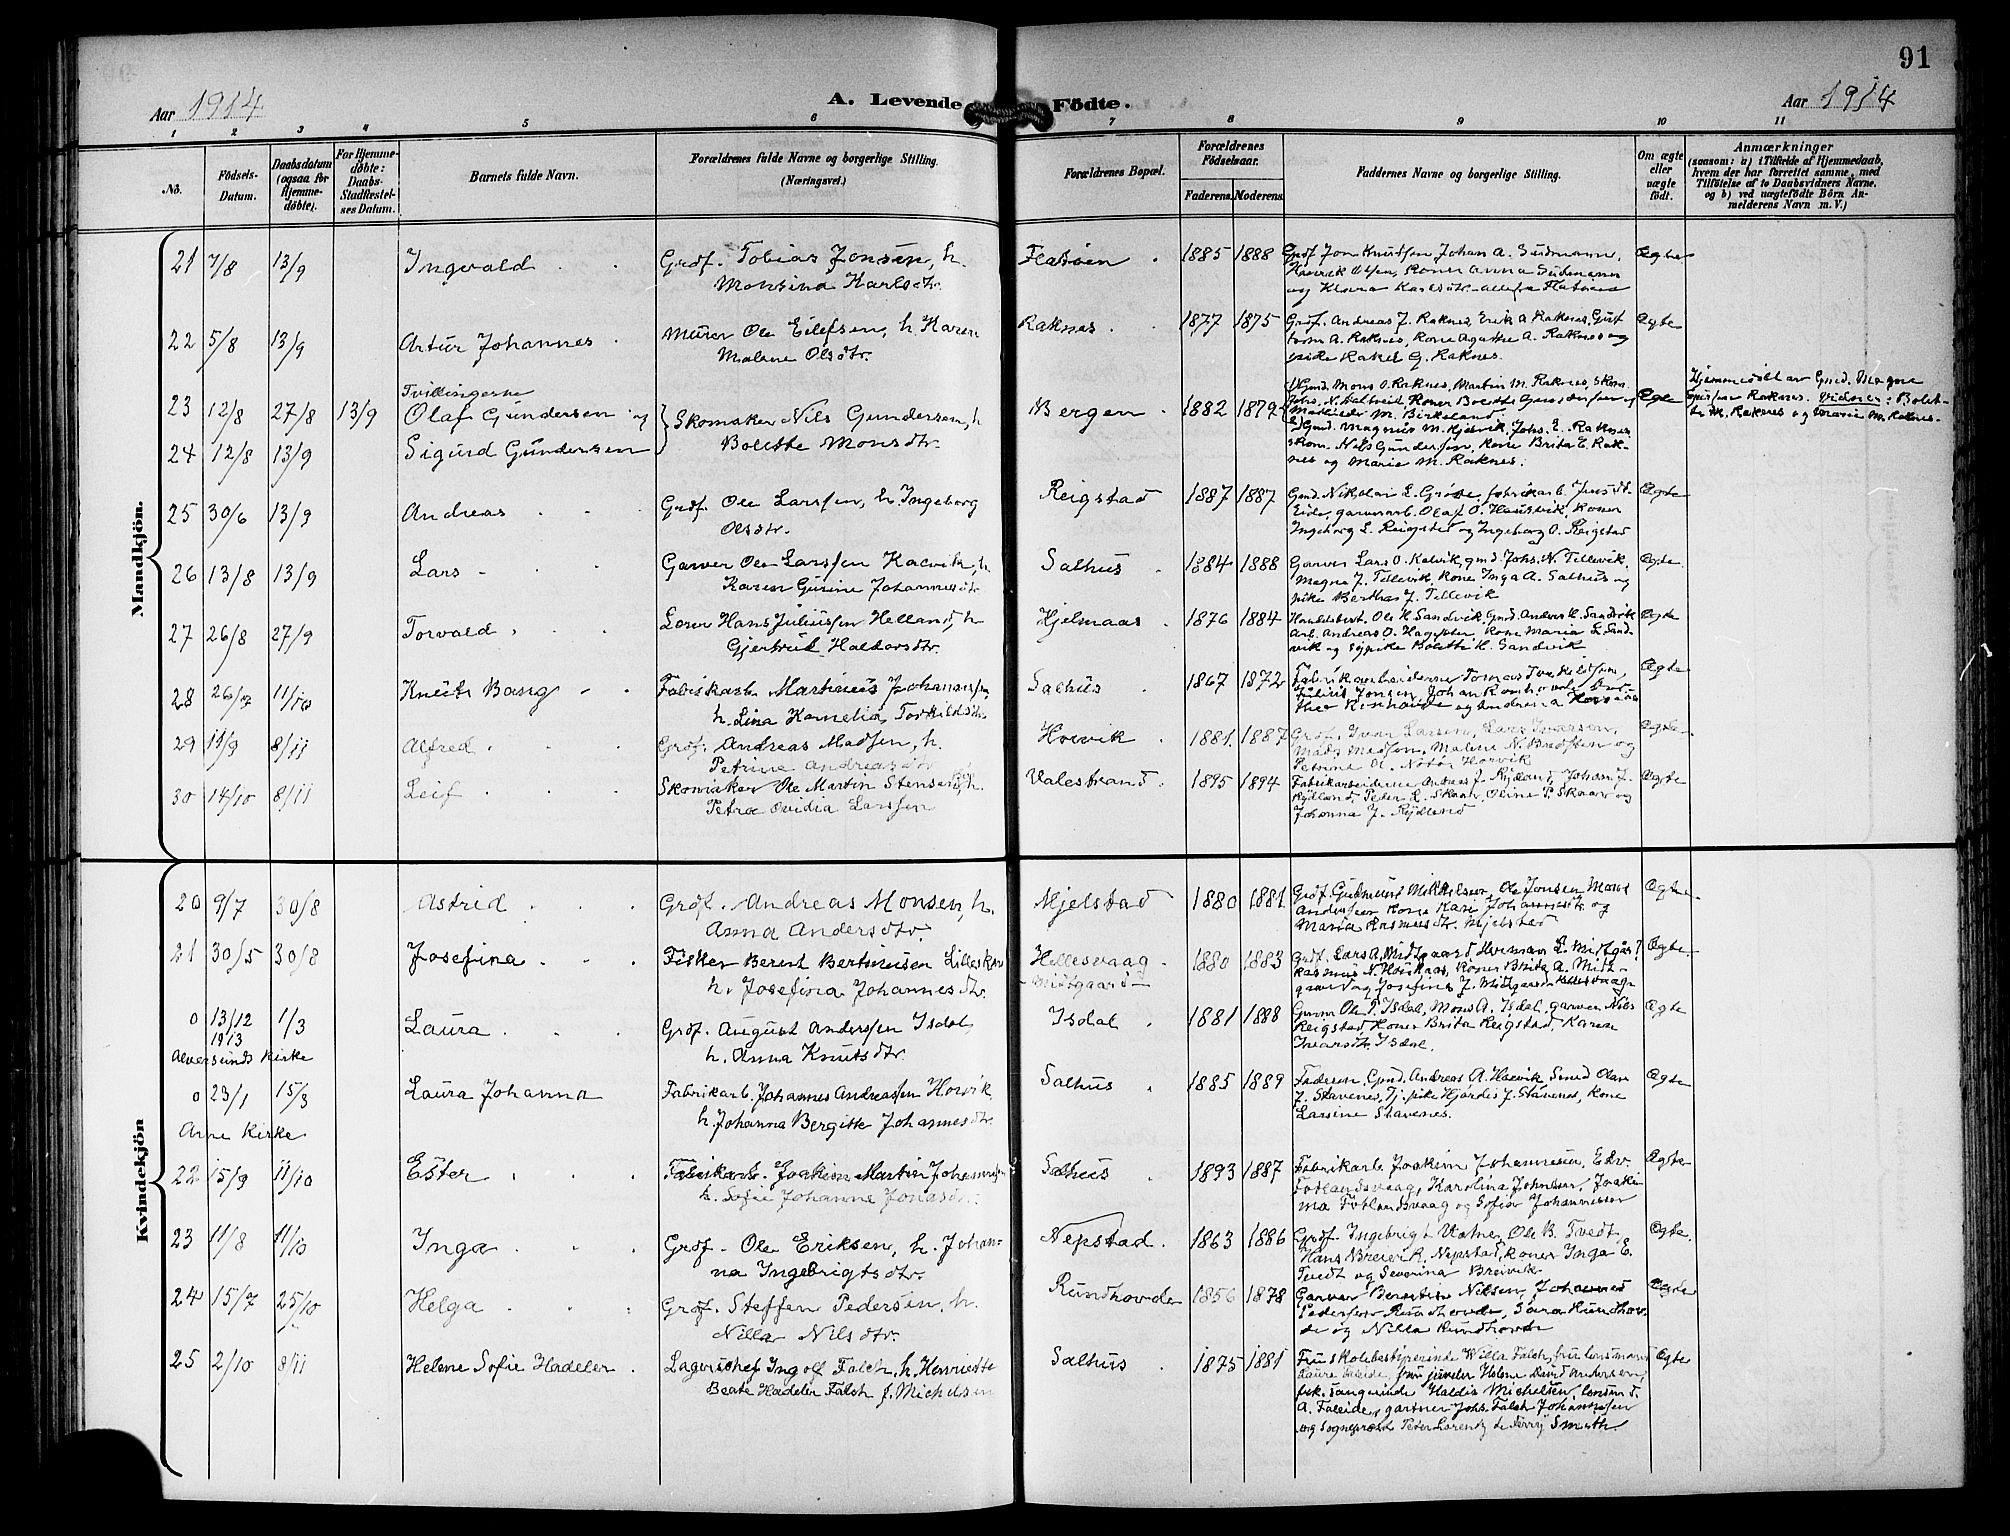 91
Aar 1914
A. Levende Födte.
Aar 1914
1 2 3 4 5 6 7 8 9 10 11
No.
Födsels-Datum.
Daabsdatum (ogsaa for Hjemme-døbte).
For Hjemme-døbte: Daabs-Stadfæstel-ses Datum.
Barnets fulde Navn.
Forældrenes fulde Navne og borgerlige Stilling.
(Næringsvei.)
Forældrenes Bopæl.
Forældrenes Födselsaar.
Faderens. Moderens.
Faddernes Navne og borgerlige Stilling.
Om ægte eller uægte födt.
Anmærkninger
(saasom: a) i Tilfælde af Hjemmedaab,
hvem der har forrettet samme, med
Tilföielse af to Daabsvidners Navne.
og b) ved uægtefödte Börn An-
melderens Navn m. V.)
Mandkjön.
21 7/8 13/9 Ingvald Grdf. Tobias Jonsen, h. Monsina Karlsdtr. Flatöen 1885 1888 Grdf Jon Knudsen Johan A. Sudmann, Olsen, Koner Anna Sudmann og Klara Karlsdtr. Ægte
22 5/8 13/9 Artur Johannes Murer Ole Eilefsen, h Karen Malene Olsdtr. Raknes 1877 1875 Grdf. Andreas J. Raknes, Erik A Raknes, A. Raknes, Kone Agathe A. Raknes og pike Rakel G. Raknes. Ægte
Tvillingerne
23 12/8 27/8 13/9 Olaf Gundersen og Skomaker Nils Gundersen, h Bolette Monsdtr. Bergen 1882 1879 Gmd. Mons O. Raknes, Martin M. Raknes, Skom. M. Birkeland. Ægte Hjemmedöbt av Gmd. Magne Raknes. Vidner: Bolette M. Raknes og Marie M. Raknes.
24 12/8 13/9 Sigurd Gundersen Gmd. Magnus M. Hjelvik, Johs. E. Raknes Skom. Nils Gundersen, Kone Brita E. Raknes og Marie M. Raknes.
25 30/6 13/9 Andreas Grdf. Ole Larssen, h Ingeborg Olsdtr. Reigstad 1887 1887 Gmd. Nikolai L. fabrikarb. Eide, garverarb. Olaf O. Hausvik, Koner Ingeborg L. Reigstad og Ingeborg O. Reigstad Ægte
26 13/8 13/9 Lars Garver Ole Larssen Kalvik, h. Karen Gurine Johannesdtr. Salhus 1884 1888 Garver Lars O. Kalvik, gmd. Johs. N. Tellevik, Magne J. Tellevik, Kone Inga A. Salhus og pike Berthe J. Tellevik Ægte
27 26/8 27/9 Torvald Hans Juliussen Helland, h Gjertrud Haldorsdtr. Hjelmaas 1876 1884 Ole H Sandvik, Gmd. Anders H. Sandvik Arb. Andreas O. Kone Maria L. Sandvik og Bolette H. Sandvik Ægte
28 11/10 Knut Bang Fabrikarb. Martinus Johannssen, h. Lina Kornelia Torkildsdtr. Salhus 1867 1872 Fabrikarbeiderne Tomas Torkildsen, Julius Jonsen, og Andrea Ægte
29 11/9 8/11 Alfred Grdf. Andreas Madsen, h. Petrine Andreasdtr. Horvik 1881. 1887 Grdf. Ivar Larsen, Lars Iversen, Mads Madsen, Malene N. og Petrine Horvik Ægte.
30 14/10 8/11 Leif Skomaker Ole Martin Stensen, h. Petra Ovidia Larssen Valestrand 1895 1894 Fabrikarbeiderne Andreas J. Rydland, Johan J. Rydland, Peder L. Skaar, Oline P. Skaar og Johanna J. Rydland Ægte
Kvindekjön
20 9/7 30/8 Astrid Grdf. Andreas Monsen, h. Anna Andersdtr. Mjelstad 1880 1881. Grdf. Gudmund Mikkelsen, Ole Jonsen Mons Anderssen Kone Kari Johannesdtr. og Maria Rasmusdtr. Mjelstad Ægte
21 30/5 30/8 Josefina Fisker Berent Bertinusen h. Josefina Johannesdtr. Hellesvaag - Midtgaard - 1880 1883 Grdf. Lars A. Midtgaard, Herman L. Midtgård, Rasmus N. Koner Brita A. Midtgaard og Josefine J. Midtgaard Ægte
0 13/12 1913 1/3 Laura Grdf. August Anderssen Isdal, h. Anna Knutsdtr. Isdal 1881 1888 Ole P. Isdal, Mons A. Isdal, garver Nils Reigstad, Koner Brita Reigstad, Karen Isdal. Ægte
Alversunds Kirke
0 23/1 15/3 Laura Johanna Fabrikarb. Johannes Andreassen Horvik h. Johanna Bergitte Johannesdtr. Salhus 1885 1889 Faderen, Gmd. Andreas A. Horvik, Smed Olav J. Stavenes, Tj. pike Hjördis J. Stavenes, Kone Larsine Stavenes. Ægte
Arne Kirke
22 15/9 11/10 Ester Fabrikarb. Joakim Martin Johannessen h. Sofie Johanne Jonasdtr. Salhus 1893 1887 Fabrikarb Joakim Johannesen, Edv. Fotlandsvaag, Karolina Johnsen, Joakima Fotlandsvaag og Sofie Johannessen Ægte
23 11/8 11/10 Inga Grdf. Ole Eriksen, h. Johanna Ingebrigtsdtr. Nepstad. 1863 1886 Grdf. Ingebrigt Vatne, Ole B. Tvedt, Hans Breivik, Nepstad, Koner Inga E. Tvedt og Severina Breivik Ægte.
24 15/7 25/10 Helga Grdf. Steffen Pedersen, h. Nilla Nilsdtr. Rundhovde 1856 1878 Garver Berntin Nilsen, Johannes Pedersen Rundhovde, Sara Rundhovde og Nilla Rundhovde Ægte
25 2/10 8/11 Helene Sofie Hadeler Lagerschef Ingolf Falch, h. Henriette Beate Hadeler Falch f. Michelsen Salhus 1875 1881 Fru skolebestyrerinde Willa Falch, fru lensmann Laura Faleide, fru juveler Helene David Andersen, frk. sangerinde Haldis Michelsen, lensmd. A. Faleide, gartner Johs. Falch Johannessen og Sogneprest Peter Lorentz de Ferry Smith. Ægte